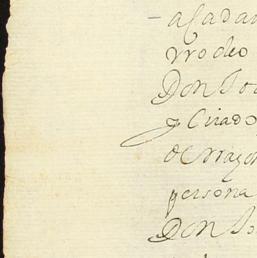 acada
rrodeo
Don Jo
y Criado
de rrazon
persona
Don Jo